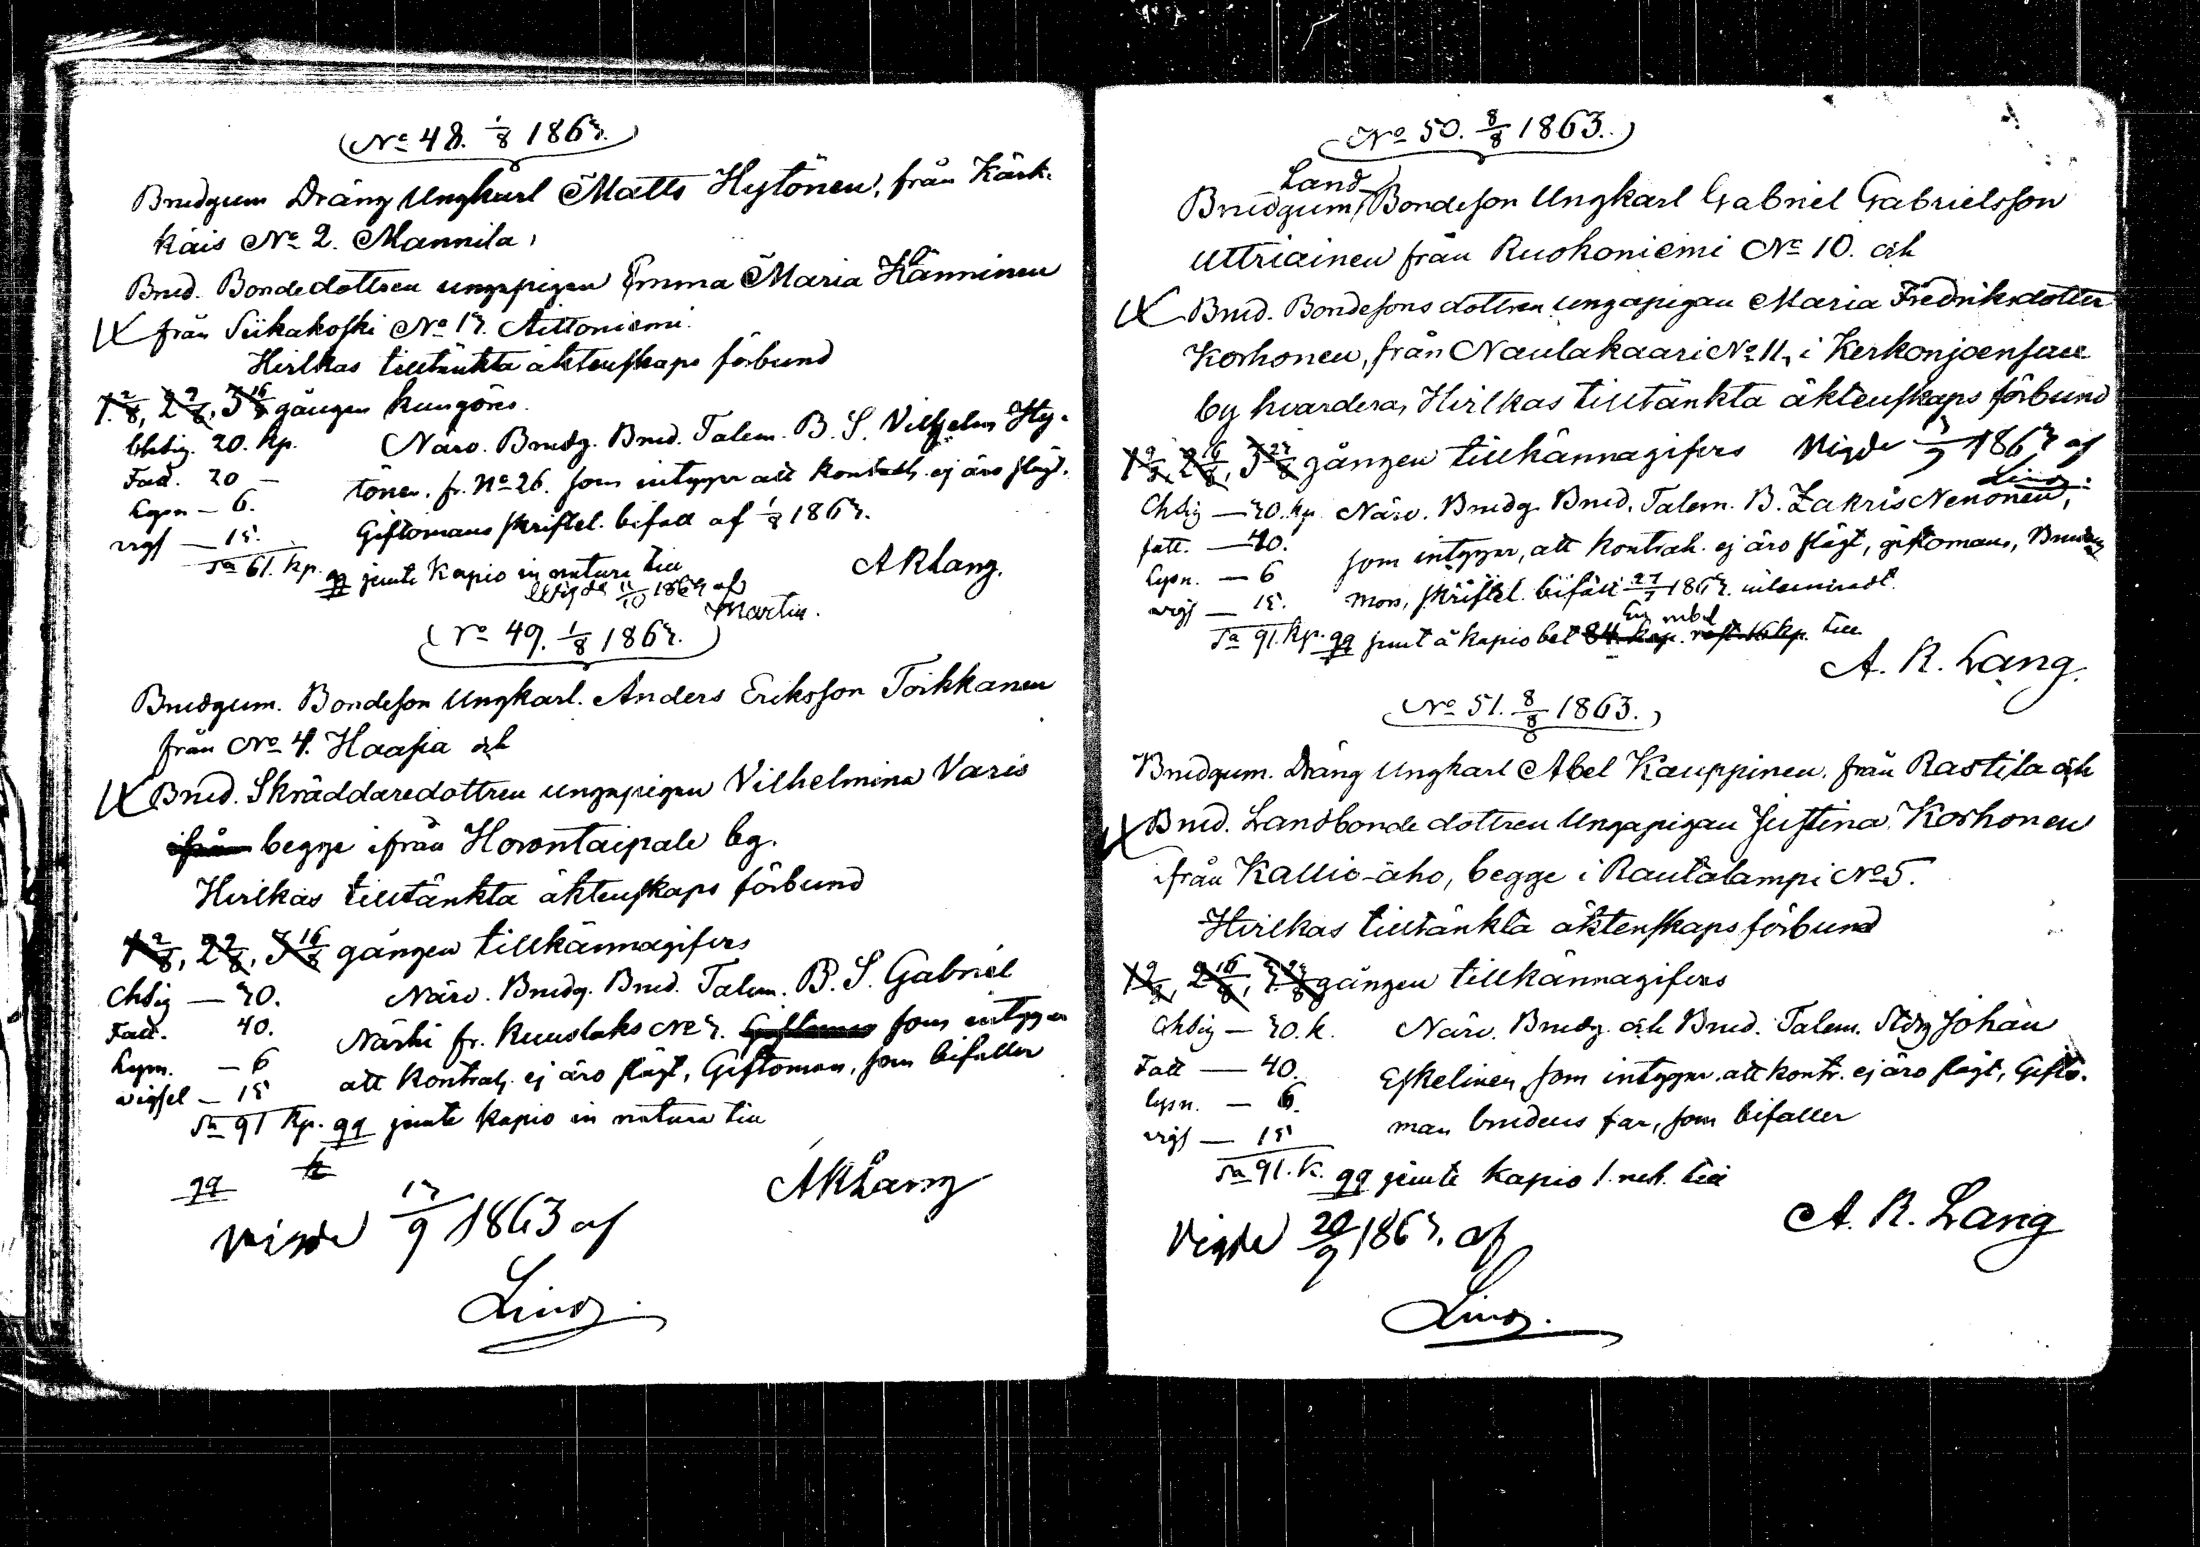 No 48. 1/8 1863.
Brudgum Dräng Ungkarl Matts Hytönen, från Kärk-
käis No 2. Mannila,
Brud. Bondedottren ungapigan Emma Maria Hänninen
från Siikakoski No 13. Aittoniemi.
Hvilkas tilltänkta äktenskaps förbund
1 2/8, 2 9/8, 3 16/8 gången kungöres.
Chtig. 20. kp. Närv. Brudg. Brud. Talem. B. S. Vilhelm Hy-
Fatt. 20 — tönen. fr. No 26. som intygar att kontrah. ej äro slägt.
Lysn — 6. Giftomans skriftel. bifall af 1/8 1863.
vigs — 15.
Sa 61. kp. qq jemte Kapio in natura till
A R Lang.
Vigde 11/10 1863 af
Martin.
No 49. 1/8 1863.
Brudgum. Bondeson Ungkarl. Anders Eriksson Toikkanen
från No 4. Haasia och
Brud. Skräddaredottren ungapigan Vilhelmina Varis
ifrån begge ifrån Horontaipale by.
Hvilkas tilltänkta äktenskaps förbund
1 2/8, 2 9/8, 3 16/8 gången tillkännagifves
Chtig — 30. Närv. Brudg. Brud. Talem. B. S. Gabriel
Fatt. 40. Närhi fr. Kuuslaks No 3. som intygar
Lysn. — 6 att Kontrah. ej äro slägt, Giftoman, som bifaller
vigsel — 15
Sa 91 kp. qq jemte kapio in natura till
qq
A R Lang
Vigde 13/9 1863 af
Lind.
No 50. 8/8 1863.
Land
Brudgum, Bondeson Ungkarl Gabriel Gabrielsson
Uttriainen från Ruokoniemi No 10. och
Brud. Bondesons dottren ungapigan Maria Fredriksdotter
Korhonen, från Naulakaari No 11, i Kerkonjoensuu
by hvardera, Hvilkas tilltänkta äktenskaps förbund
1 9/8, 2 16/8, 3 23/8 gången tillkännagifves Vigde 1863 af
Lind.
Chtig — 30. kp. Närv. Brudg. Brud. Talem. B. Zakris Nenonen,
fatt. — 40. som intygar, att kontrah. ej äro slägt, giftoman, Brudens
Lysn. — 6 mor, skriftel. bifall 27/7 1863. inlemnadt.
vigs — 15. En rubel
Sa 91. kp. qq jemt å kapio bet 84. kop. rest. 16 kp. till
A. R. Lang.
No 51. 8/8 1863.
Brudgum. Dräng Ungkarl Abel Kauppinen. från Rastila och
Brud. Landbonde dottren Ungapigan Justina Korhonen
ifrån Kallio-aho, begge i Rautalampi No 5.
Hvilkas tilltänkta äktenskaps förbund
1 9/8, 2 16/8, 3 23/8 gången tillkännagifves
Chtig — 30. k. Närv. Brudg. och Brud. Talem. Johan
Fatt — 40. Eskelinen, som intygar, att kontr. ej äro slägt, Gifto-
Lysn. — 6. man brudens far, som bifaller
vigs — 15
Sa 91. k. qq jemte kapio till
A. R. Lang
Vigde 20/9 1863. af
Lind.